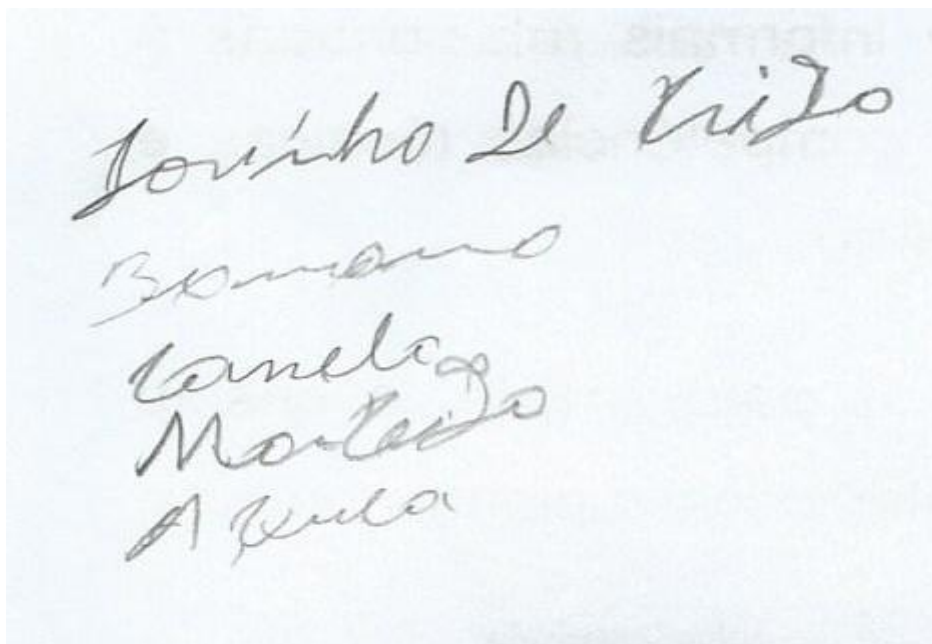 Farinha De Trigo
Banana
Canela
Manteiga
Açuca